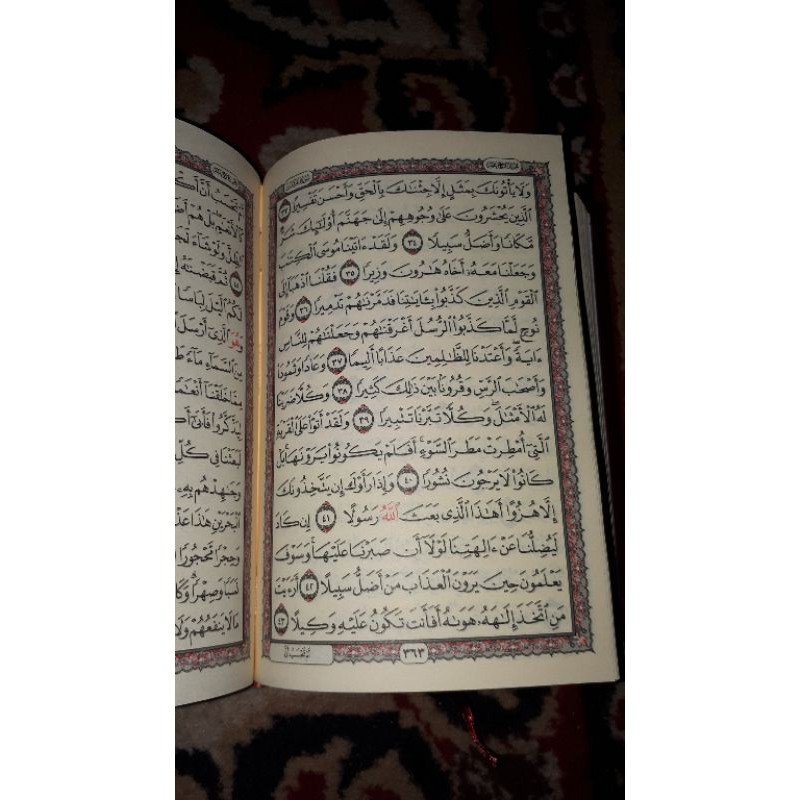 وَلَا يَأْتُونَكَ بِمَثَلٍ إِلَّا جِئْنَٰكَ بِٱلْحَقِّ وَأَحْسَنَ تَفْسِيرًا ٣٣
ٱلَّذِينَ يُحْشَرُونَ عَلَىٰ وُجُوهِهِمْ إِلَىٰ جَهَنَّمَ أُو۟لَٰٓئِكَ شَرٌّ
مَّكَانًا وَأَضَلُّ سَبِيلًا ٣٤ وَلَقَدْ ءَاتَيْنَا مُوسَى ٱلْكِتَٰبَ
وَجَعَلْنَا مَعَهُۥٓ أَخَاهُ هَٰرُونَ وَزِيرًا ٣٥ فَقُلْنَا ٱذْهَبَآ إِلَى
ٱلْقَوْمِ ٱلَّذِينَ كَذَّبُوا۟ بِـَٔايَٰتِنَا فَدَمَّرْنَٰهُمْ تَدْمِيرًا ٣٦ وَقَوْمَ
نُوحٍ لَّمَّا كَذَّبُوا۟ ٱلرُّسُلَ أَغْرَقْنَٰهُمْ وَجَعَلْنَٰهُمْ لِلنَّاسِ
ءَايَةً وَأَعْتَدْنَا لِلظَّٰلِمِينَ عَذَابًا أَلِيمًا ٣٧ وَعَادًا وَثَمُودَا۟
وَأَصْحَٰبَ ٱلرَّسِّ وَقُرُونًۢا بَيْنَ ذَٰلِكَ كَثِيرًا ٣٨ وَكُلًّا ضَرَبْنَا
لَهُ ٱلْأَمْثَٰلَ وَكُلًّا تَبَّرْنَا تَتْبِيرًا ٣٩ وَلَقَدْ أَتَوْا۟ عَلَى ٱلْقَرْيَةِ
ٱلَّتِىٓ أُمْطِرَتْ مَطَرَ ٱلسَّوْءِ أَفَلَمْ يَكُونُوا۟ يَرَوْنَهَا بَلْ
كَانُوا۟ لَا يَرْجُونَ نُشُورًا ٤٠ وَإِذَا رَأَوْكَ إِن يَتَّخِذُونَكَ
إِلَّا هُزُوًا أَهَٰذَا ٱلَّذِى بَعَثَ ٱللَّهُ رَسُولًا ٤١ إِن كَادَ
لَيُضِلُّنَا عَنْ ءَالِهَتِنَا لَوْلَآ أَن صَبَرْنَا عَلَيْهَا وَسَوْفَ
يَعْلَمُونَ حِينَ يَرَوْنَ ٱلْعَذَابَ مَنْ أَضَلُّ سَبِيلًا ٤٢ أَرَءَيْتَ
مَنِ ٱتَّخَذَ إِلَٰهَهُۥ هَوَىٰهُ أَفَأَنتَ تَكُونُ عَلَيْهِ وَكِيلًا ٤٣
٣٦٣
تَحْسَبُ أَنَّ
كَٱلْأَنْعَٰمِ بَلْ هُمْ
ٱلظِّلَّ وَلَوْ شَآءَ
ثُمَّ قَبَضْنَٰهُ
لَكُمُ ٱلَّيْلَ لِبَاسًا
وَهُوَ ٱلَّذِىٓ أَرْسَلَ
مِنَ ٱلسَّمَآءِ مَآءً
مِمَّا خَلَقْنَآ
لِيَذَّكَّرُوا۟ فَأَبَىٰٓ
لَبَعَثْنَا فِى كُلِّ
وَجَٰهِدْهُم بِهِۦ
ٱلْبَحْرَيْنِ هَٰذَا
وَحِجْرًا مَّحْجُورًا
نَسَبًا وَصِهْرًا
مَا لَا يَنفَعُهُمْ وَلَا